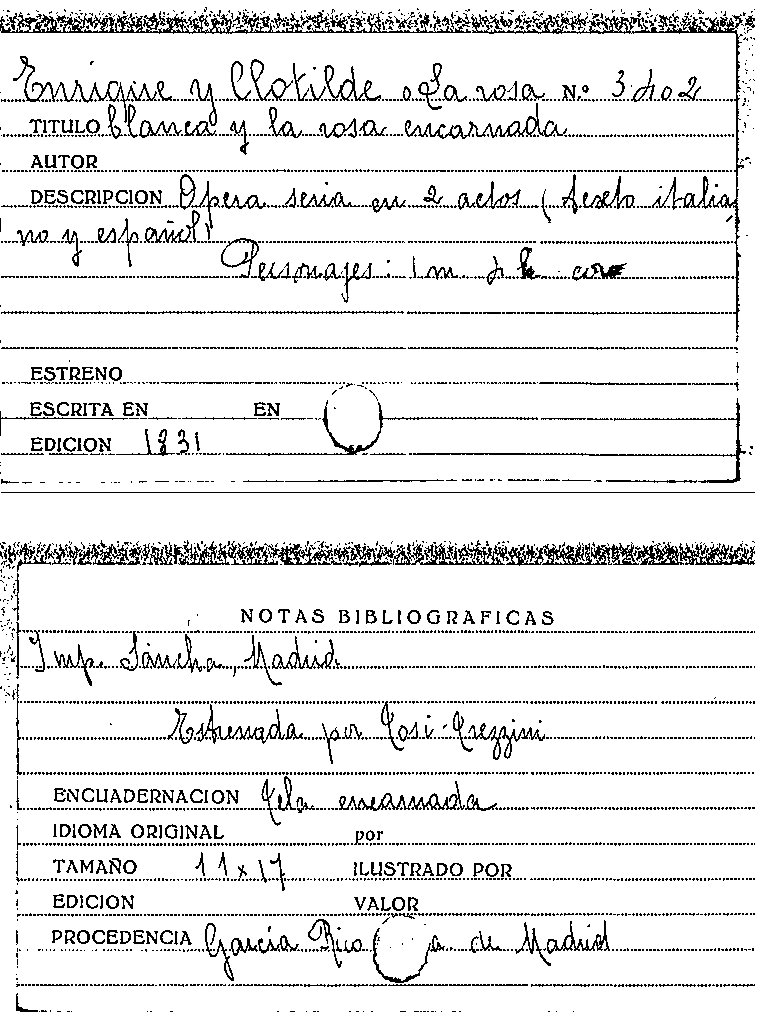 Enrique y Clotilde o La rosa N.º 3402
TITULO blanca y la rosa encarnada
AUTOR
DESCRIPCION Opera seria en 2 actos (Texto italia
no y español)
Personajes: 1 m. 4 h. coro
ESTRENO
ESCRITA EN EN
EDICION 1831
NOTAS BIBLIOGRAFICAS
Imp. Sancha, Madrid
Estrenada por Tosi-Trezzini
ENCUADERNACION Tela encarnada
IDIOMA ORIGINAL por
TAMAÑO 11 x 17 ILUSTRADO POR
EDICION VALOR
PROCEDENCIA García Rico de Madrid